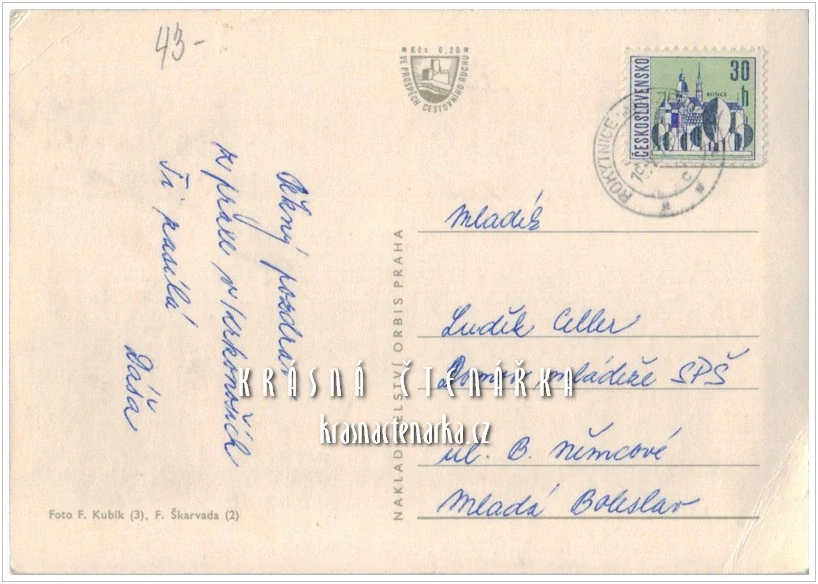 43-
Kčs 0,20
VE PROSPĚCH CESTOVNÍHO RUCHU
ČESKOSLOVENSKO
30 h
KOŠICE
ROKYTNICE
C
Pěkný pozdrav
z práce v Krkonoších
Ti posílá
Dáša
NAKLADATELSTVÍ ORBIS PRAHA
Mladík
Luděk Celler
Domov mládeže SPŠ
ul. B. Němcové
Mladá Boleslav
KRÁSNÁ ČTENÁŘKA
krasnactenarka.cz
Foto F. Kubík (3), F. Škarvada (2)